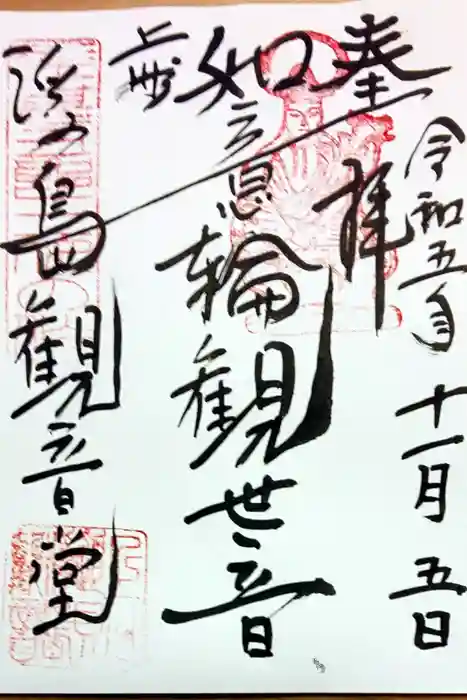 奉拝
令和五年
十一月五日
如意輪観世音
上州
浜の島観音堂